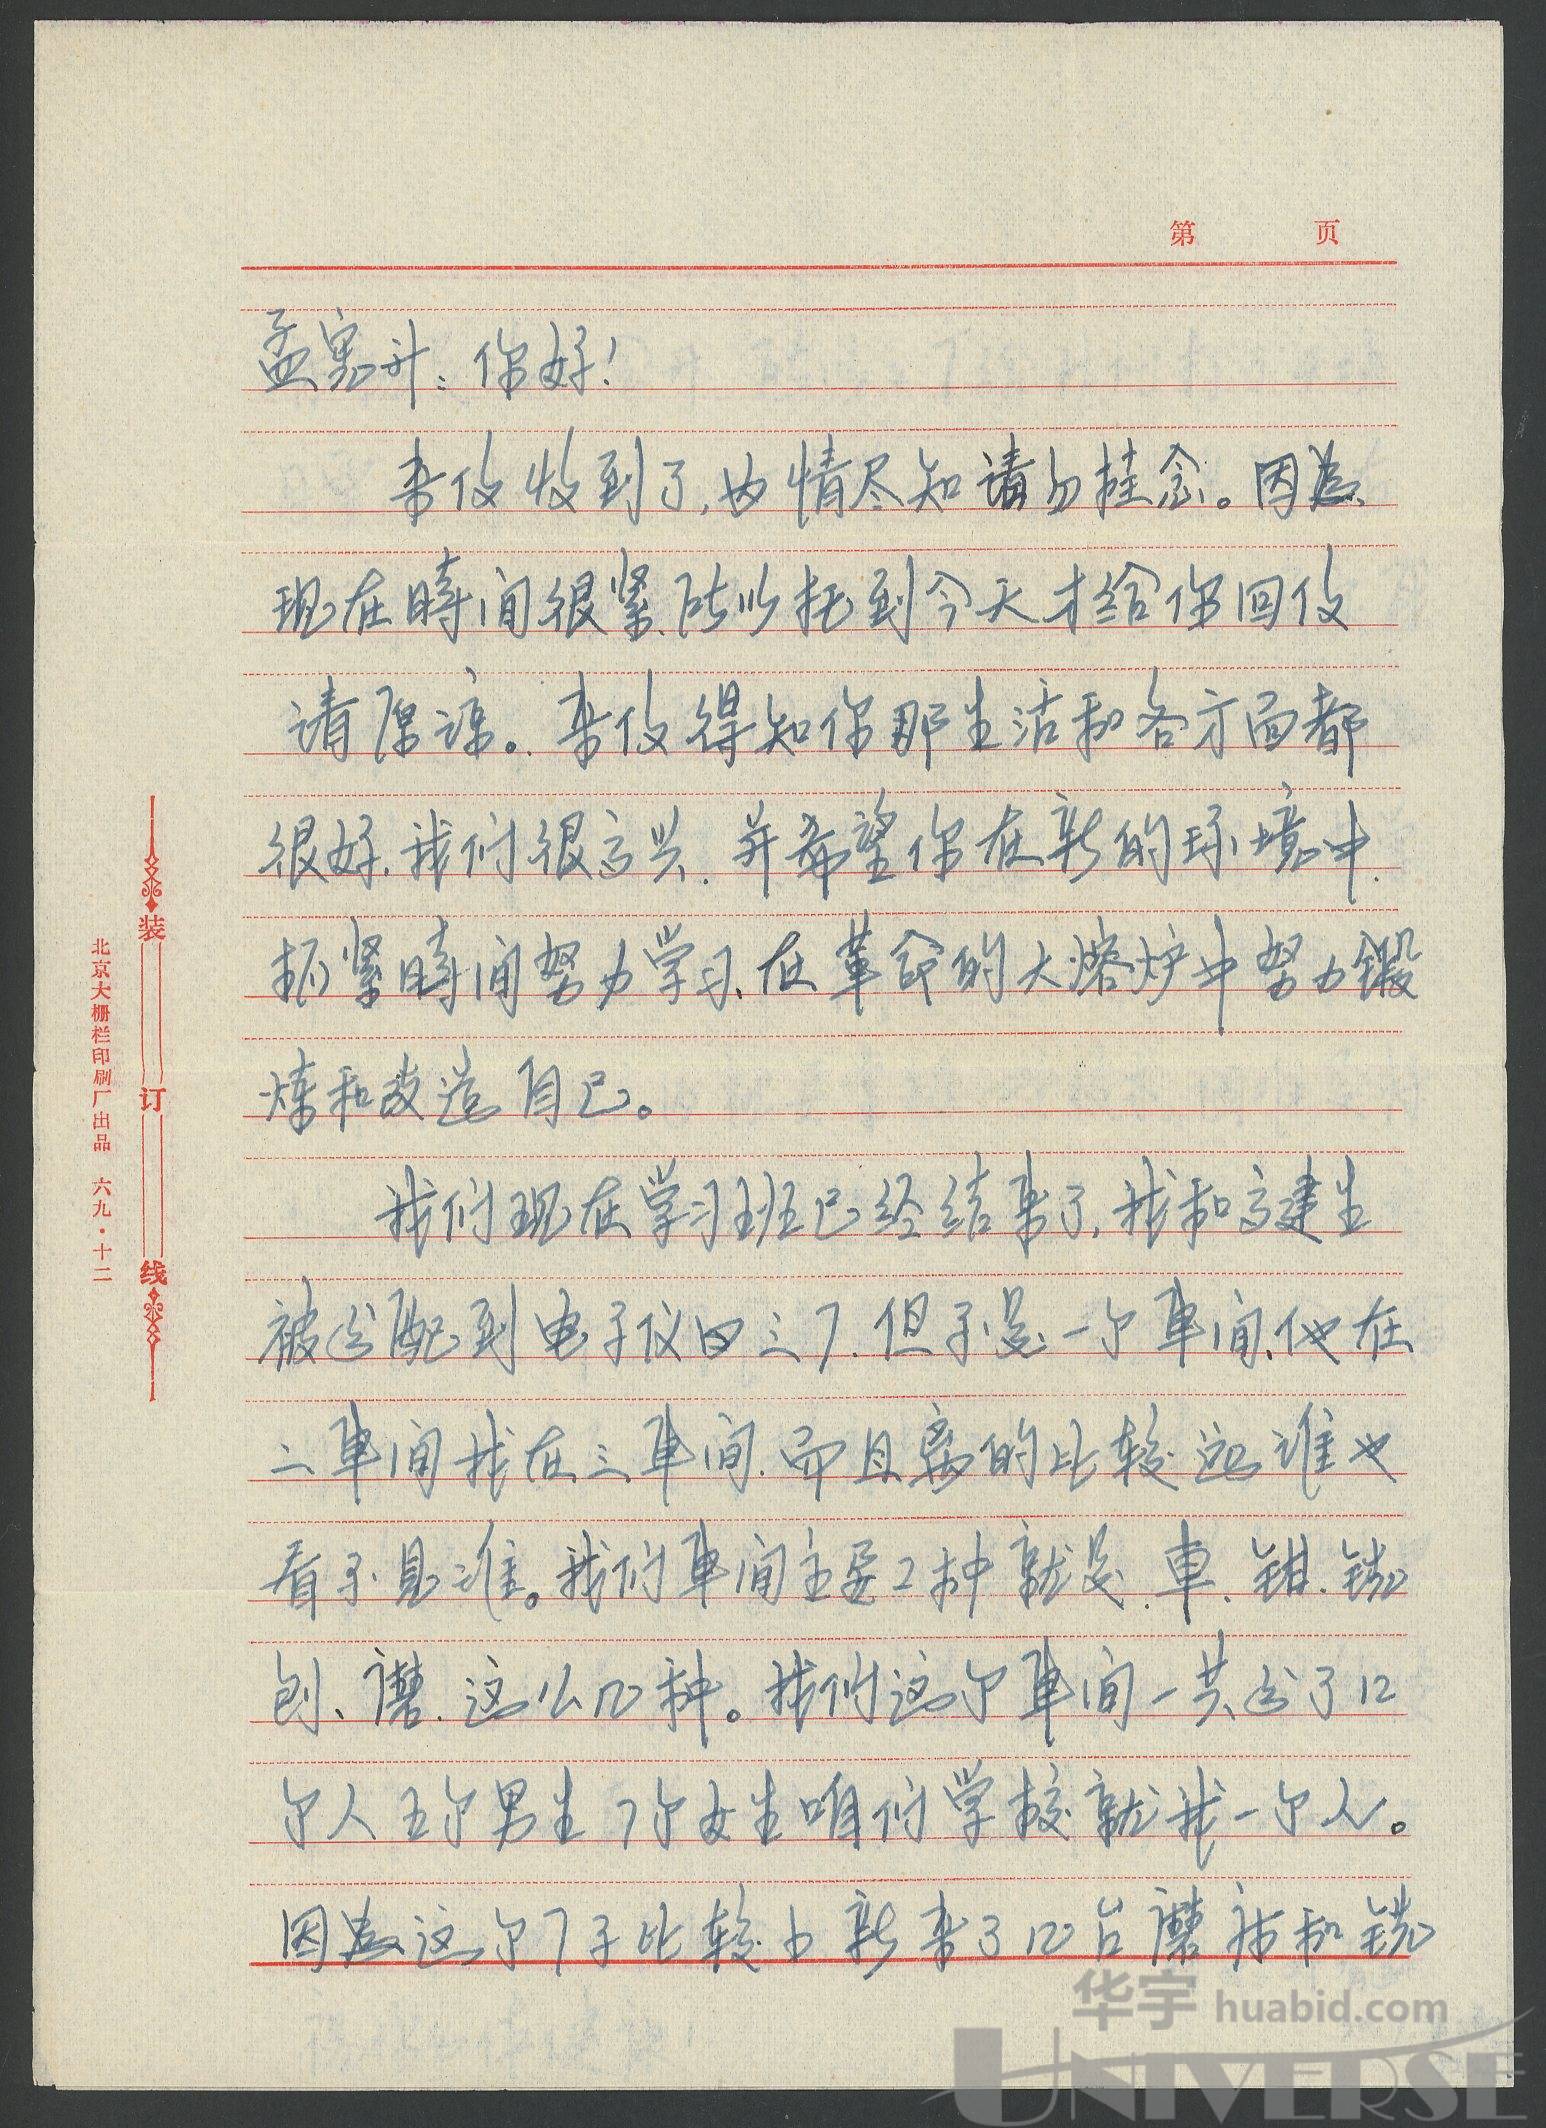 第 页
孟宪升：你好！
来信收到了，内情尽知请勿挂念。因为
现在時间很紧、所以托到今天才给你回信
请原谅。来信得知你那生活和各方面都
很好、我们很高兴、并希望你在新的环境中、
抓紧時间努力学习、在革命的大熔炉中努力鍛
炼和改造自己。
我们现在学习班已经结束了，我和高建生
被分配到电子仪内三厂、但不是一个車间、他在
二車间我在三車间、而且离的比较远谁也
看不見谁。我们車间主要工种就是、車、钳、铣
刨、磨、这么几种。我们这个車间一共分了12
个人五个男生7个女生咱们学校就我一个人。
因为这个厂子比较小新来了几台磨床和铣
装订线
北京大栅栏印刷厂出品 六九·十二
华宇 huabid.com
UNIVERSE